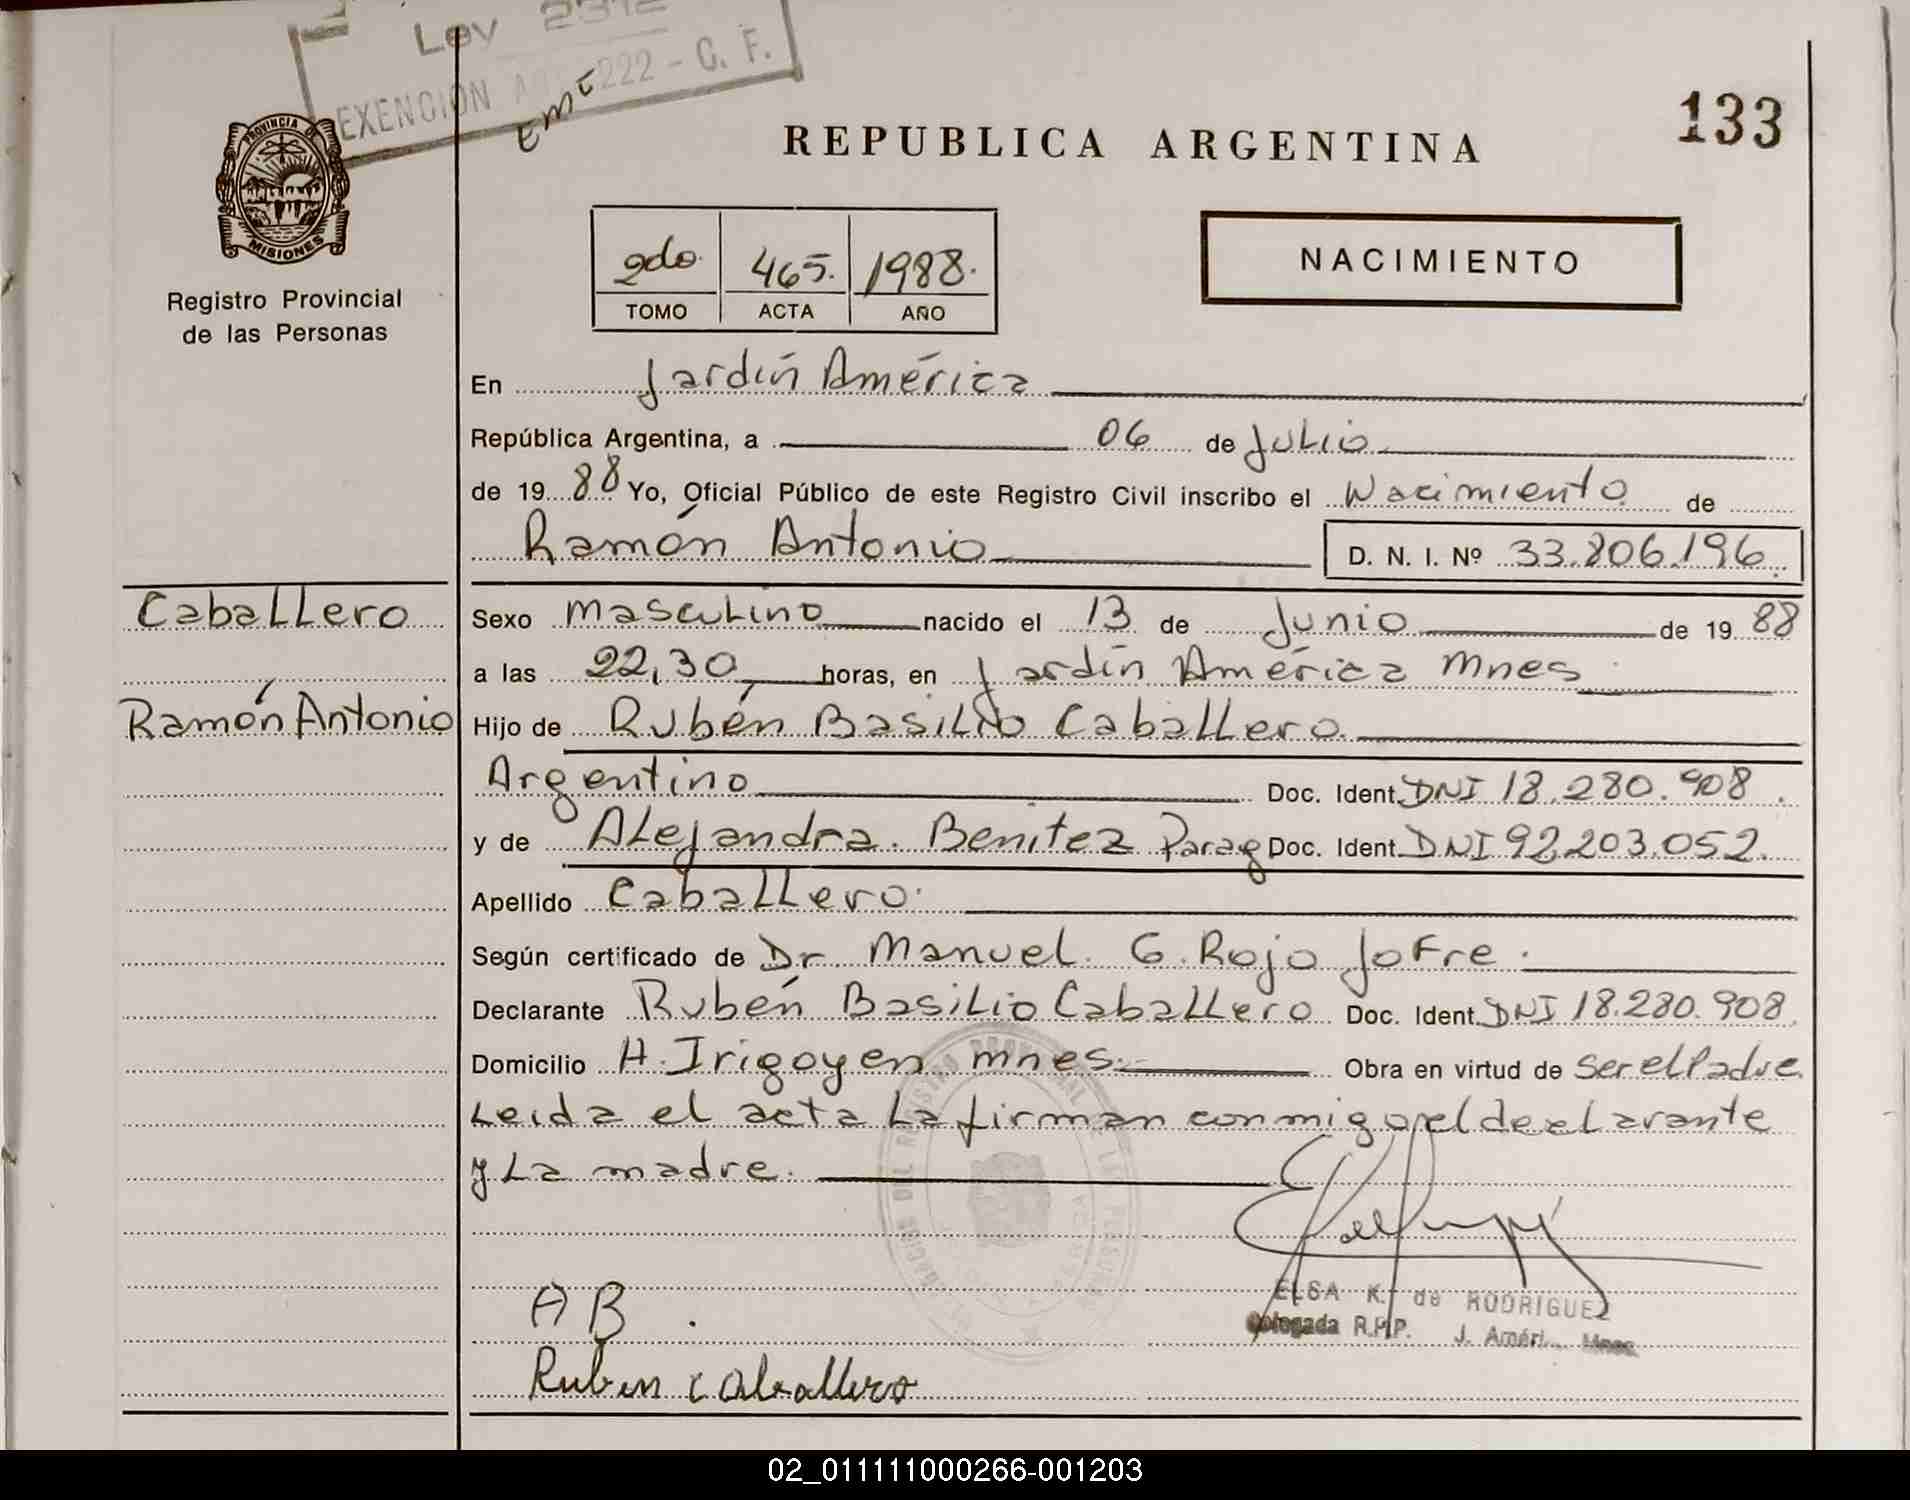 Ley 2312
EXENCION A 222 - C. F.
PROVINCIA DE
MISIONES
Registro Provincial
de las Personas
REPUBLICA ARGENTINA
133
2do. 465. 1988.
TOMO ACTA AÑO
NACIMIENTO
En Jardín América
República Argentina, a 06 de Julio
de 19 88 Yo, Oficial Público de este Registro Civil inscribo el Nacimiento de
Ramón Antonio D. N. I. Nº 33.806.196
Caballero
Ramón Antonio
Sexo masculino nacido el 13 de Junio de 19 88
a las 22,30 horas, en Jardín América Mnes
Hijo de Rubén Basilio Caballero
Argentino Doc. Ident. DNI 18.280.908.
y de Alejandra. Benítez Parag Doc. Ident. DNI 92.203.052.
Apellido Caballero.
Según certificado de Dr Manuel. G. Rojo Jofre.
Declarante Rubén Basilio Caballero Doc. Ident. DNI 18.280.908.
Domicilio H. Irigoyen mnes. Obra en virtud de ser el Padre
Leida el acta la firman conmigo el declarante
y La madre.
A B .
ELSA K. de RODRIGUEZ
Delegada R.P.P. J. Améri.. Mnes.
Ruben Caballero
02_011111000266-001203